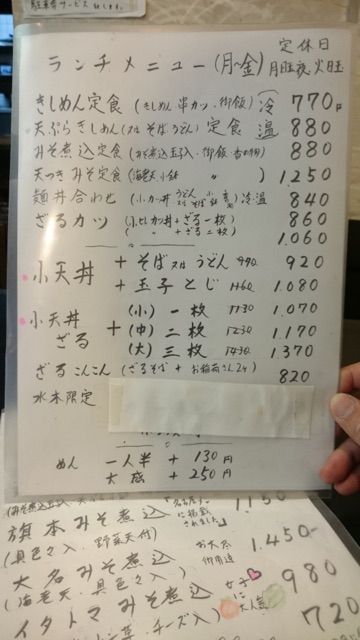 駐車券サービス
定休日
ランチメニュー(月-金) 月旺夜、火旺
きしめん定食 (きしめん 串カツ、御飯) 冷 770円
天ぷらきしめん(又は そば、うどん) 定食 温 880
みそ煮込定食 (みそ煮込玉子入、御飯 香の物) 880
天つきみそ定食 (海老天、小鉢 〃 ) 1,250
麺丼合わせ (小カツ丼 うどん 又は そば 冷温 840
ざるカツ (小ヒレカツ丼+ざる一枚) 860
〃 (〃 +ざる二枚) 1,060
小天丼 + そば又はうどん 990 920
+ 玉子とじ 1160 1,080
小天丼 ざる + (小) 一枚 1130 1,070
(中) 二枚 1230 1,170
(大) 三枚 1430 1,370
ざるこんこん (ざるそば + お稲荷さん2ヶ) 820
水木限定
めん 一人半 + 130円
大盛 + 250円
(みそ煮込玉子入 1,150
旗本みそ煮込 「名古屋 に掲載されました」
(具色々入、野菜天付) 1,450-
大名みそ煮込 お大名御用達
(海老天、具色々入) 980
イタトマみそ煮込 女子に大人気
チーズ入) 720